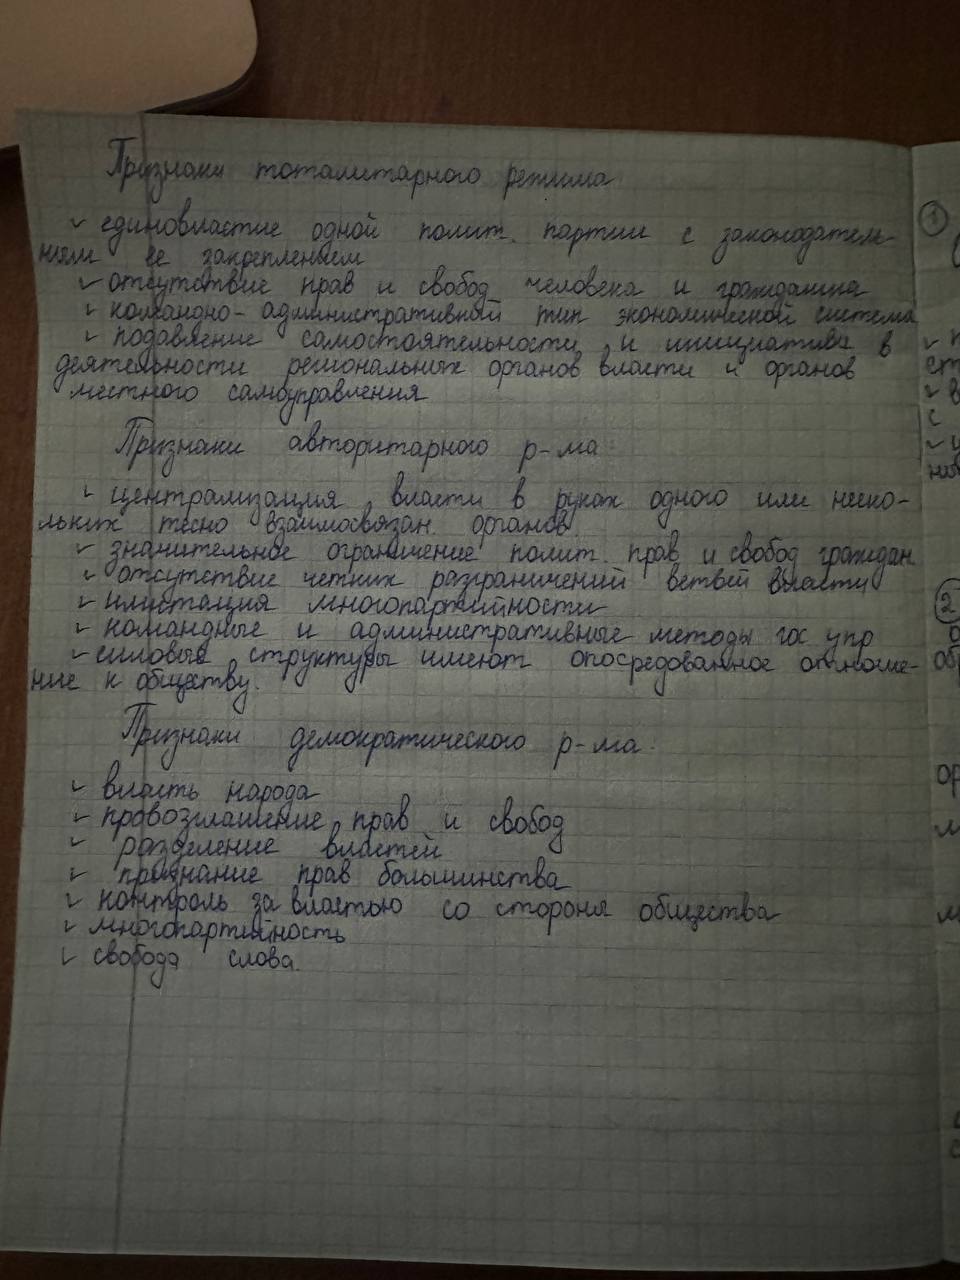 Признаки тоталитарного режима
✓ единовластие одной полит. партии с законодатель-
ным ее закреплением
✓ отсутствие прав и свобод человека и гражданина
✓ командно-административный тип экономической система
✓ подавление самостоятельности и инициативы в
деятельности региональных органов власти и органов
местного самоуправления
Признаки авторитарного р-ма
✓ централизация власти в руках одного или неско-
льких тесно взаимосвязан. органов.
✓ значительное ограничение полит. прав и свобод граждан
✓ отсутствие четких разграничений ветвей власти
✓ имитация многопартийности
✓ командные и административные методы гос упр
✓ силовые структуры имеют опосредованное отноше-
ние к обществу.
Признаки демократического р-ма.
✓ власть народа
✓ провозглашение прав и свобод
✓ разделение властей
✓ признание прав большинства
✓ контроль за властью со стороны общества
✓ многопартийность
✓ свобода слова.
1
2